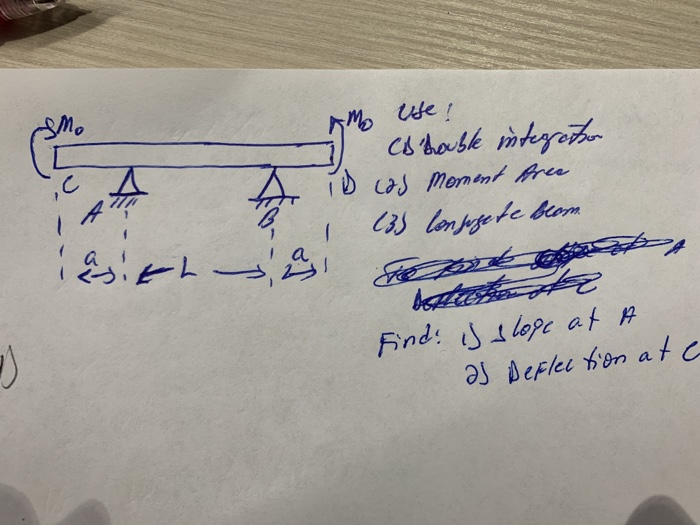 Mo
Mo
C
D
A
B
a
L
a
Use!
(1) Double integration
(2) Moment Area
(3) Conjugate Beam
A
Find: 1) Slope at A
2) Deflection at C